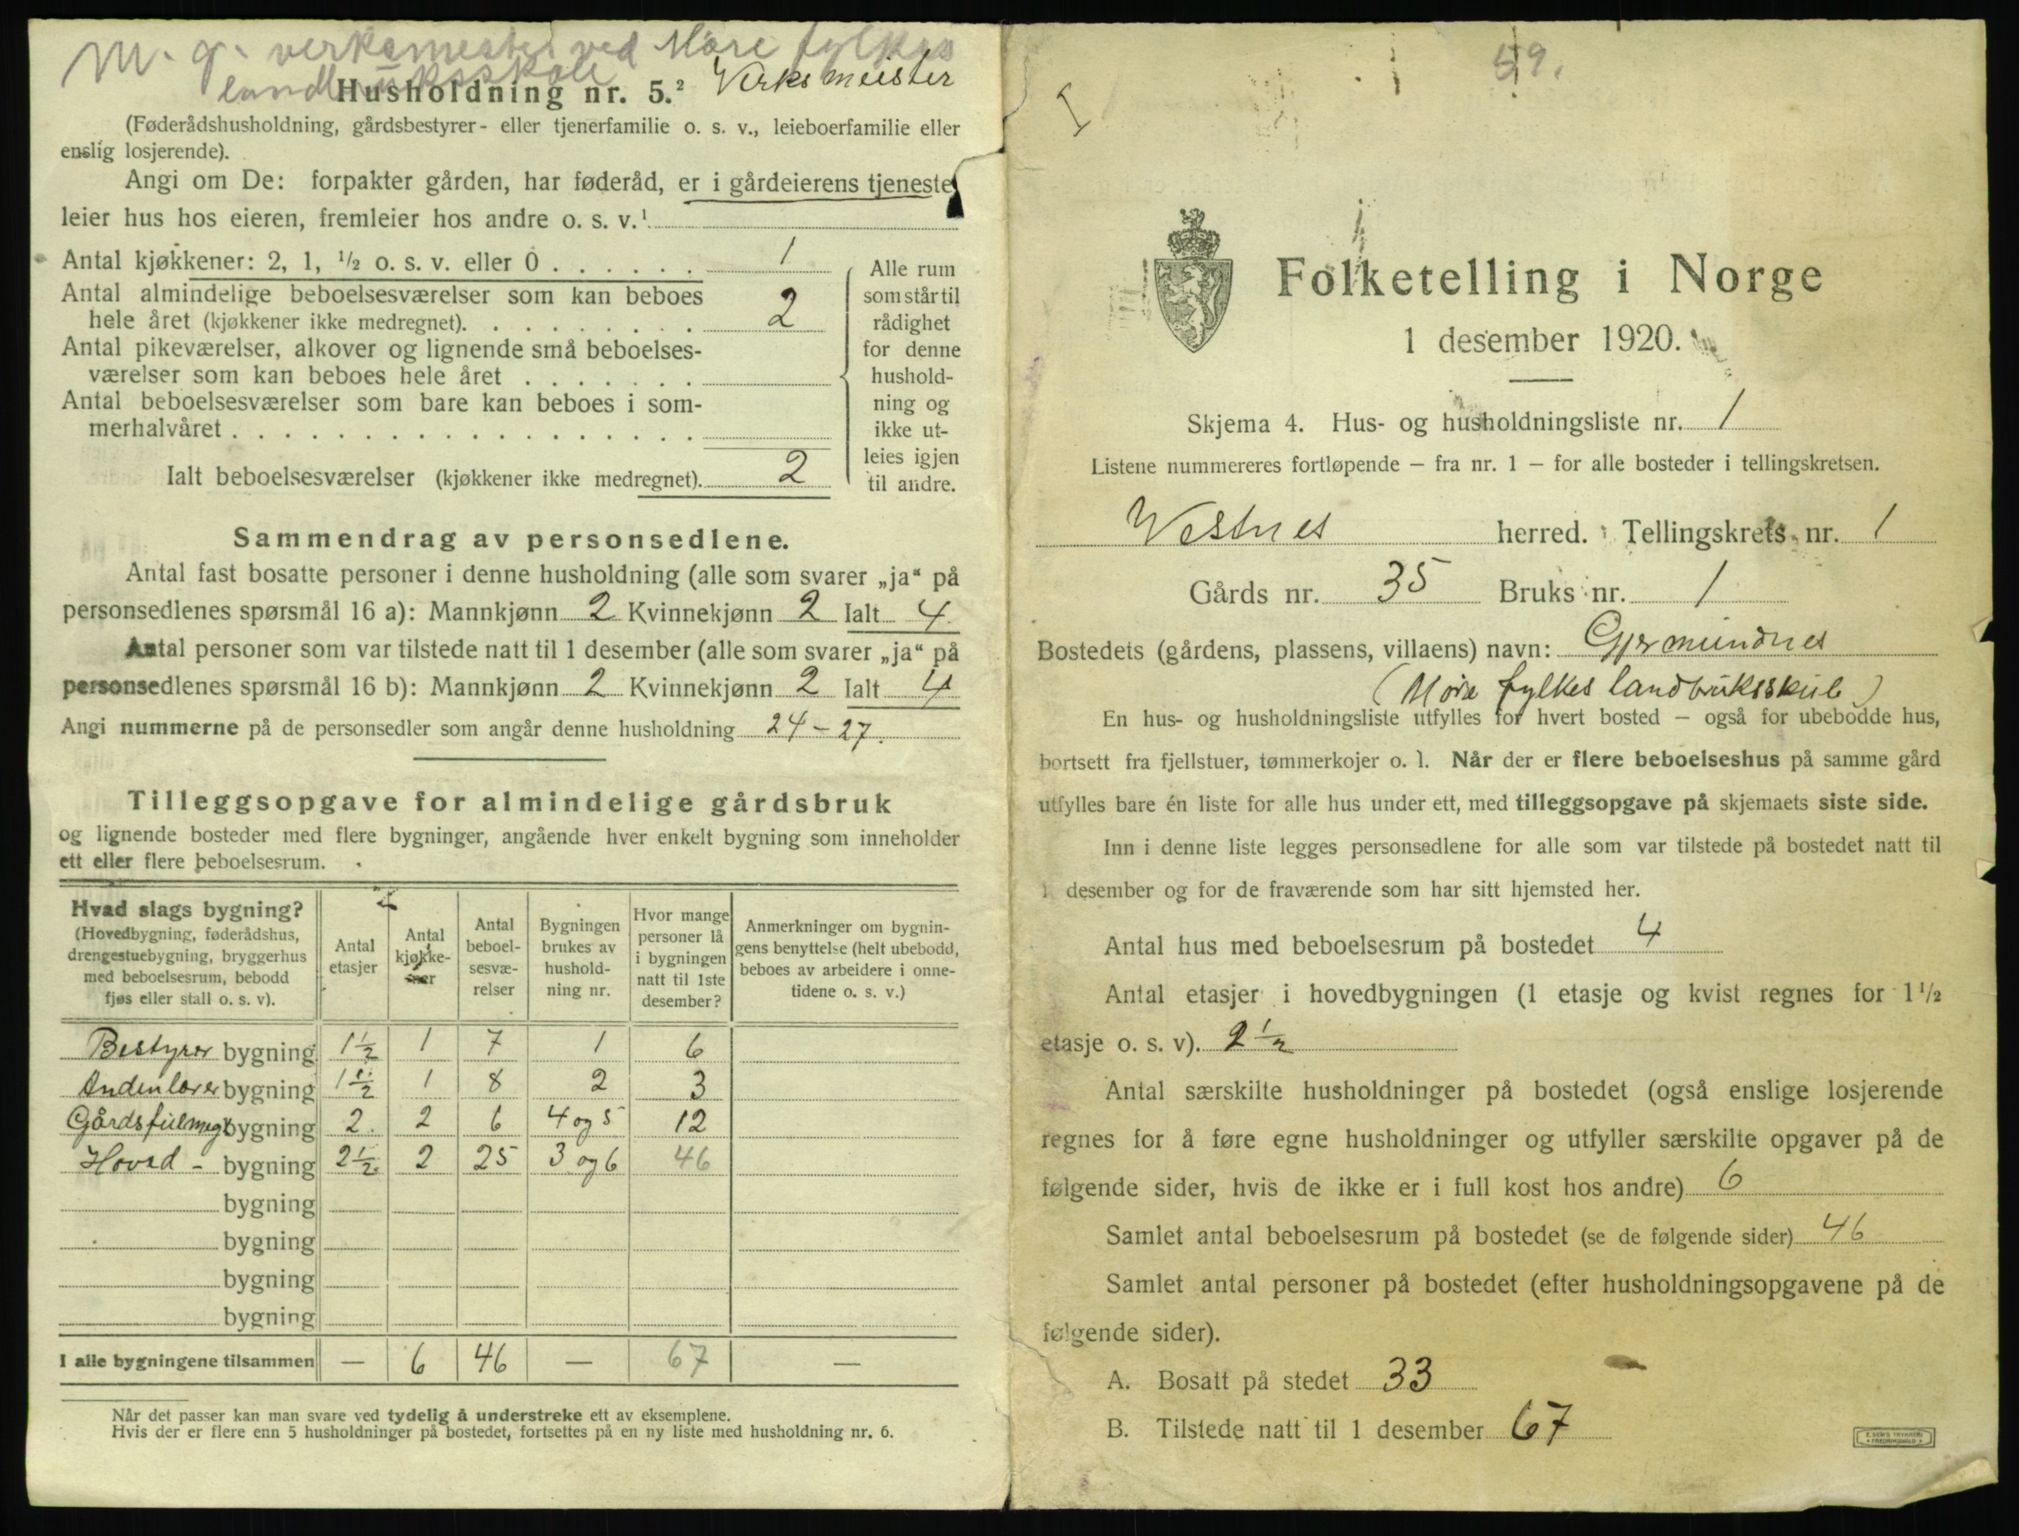 M. g. verksmester ved Møre fylkes
landbruksskole
Husholdning nr. 5.² Verksmeister
(Føderådshusholdning, gårdsbestyrer- eller tjenerfamilie o. s. v., leieboerfamilie eller
enslig losjerende).
Angi om De: forpakter gården, har føderåd, er i gårdeierens tjeneste
leier hus hos eieren, fremleier hos andre o. s. v.¹
Antal kjøkkener: 2, 1, ½ o. s. v. eller 0 . . . . . . 1
Antal almindelige beboelsesværelser som kan beboes
hele året (kjøkkener ikke medregnet). . . . . . . . . 2
Antal pikeværelser, alkover og lignende små beboelses-
værelser som kan beboes hele året . . . . . . .
Antal beboelsesværelser som bare kan beboes i som-
merhalvåret . . . . . . . . . . . . . . . . . .
Ialt beboelsesværelser (kjøkkener ikke medregnet). 2
Alle rum
som står til
rådighet
for denne
hushold-
ning og
ikke ut-
leies igjen
til andre.
Sammendrag av personsedlene.
Antal fast bosatte personer i denne husholdning (alle som svarer „ja“ på
personsedlenes spørsmål 16 a): Mannkjønn 2 Kvinnekjønn 2 Ialt 4
Antal personer som var tilstede natt til 1 desember (alle som svarer „ja“ på
personsedlenes spørsmål 16 b): Mannkjønn 2 Kvinnekjønn 2 Ialt 4
Angi nummerne på de personsedler som angår denne husholdning 24 – 27.
Tilleggsopgave for almindelige gårdsbruk
og lignende bosteder med flere bygninger, angående hver enkelt bygning som inneholder
ett eller flere beboelsesrum.
Hvad slags bygning?
(Hovedbygning, føderådshus,
drengestuebygning, bryggerhus
med beboelsesrum, bebodd
fjøs eller stall o. s. v).
Antal
etasjer
Antal
kjøkke-
ner
Antal
beboel-
sesvæ-
relser
Bygningen
brukes av
hushold-
ning nr.
Hvor mange
personer lå
i bygningen
natt til 1ste
desember?
Anmerkninger om bygnin-
gens benyttelse (helt ubebodd,
beboes av arbeidere i onne-
tidene o. s. v.)
Bestyrer bygning 1½ 1 7 1 6
Andenlærer bygning 1½ 1 8 2 3
Gårdsfulmegt bygning 2. 2 6 4 og 5 12
Hoved - bygning 2½ 2 25 3 og 6 46
bygning
bygning
bygning
bygning
I alle bygningene tilsammen — 6 46 — 67 —
Når det passer kan man svare ved tydelig å understreke ett av eksemplene.
Hvis der er flere enn 5 husholdninger på bostedet, fortsettes på en ny liste med husholdning nr. 6.
59.
I
Folketelling i Norge
1 desember 1920.
Skjema 4. Hus- og husholdningsliste nr. 1
Listene nummereres fortløpende – fra nr. 1 – for alle bosteder i tellingskretsen.
Vestnes herred. Tellingskrets nr. 1
Gårds nr. 35 Bruks nr. 1
Bostedets (gårdens, plassens, villaens) navn: Gjermundnes
(Møre fylkes landbruksskule)
En hus- og husholdningsliste utfylles for hvert bosted – også for ubebodde hus,
bortsett fra fjellstuer, tømmerkojer o. l. Når der er flere beboelseshus på samme gård
utfylles bare én liste for alle hus under ett, med tilleggsopgave på skjemaets siste side.
Inn i denne liste legges personsedlene for alle som var tilstede på bostedet natt til
1 desember og for de fraværende som har sitt hjemsted her.
Antal hus med beboelsesrum på bostedet 4
Antal etasjer i hovedbygningen (1 etasje og kvist regnes for 1½
etasje o. s. v). 2½
Antal særskilte husholdninger på bostedet (også enslige losjerende
regnes for å føre egne husholdninger og utfyller særskilte opgaver på de
følgende sider, hvis de ikke er i full kost hos andre) 6
Samlet antal beboelsesrum på bostedet (se de følgende sider) 46
Samlet antal personer på bostedet (efter husholdningsopgavene på de
følgende sider).
A. Bosatt på stedet 33
B. Tilstede natt til 1 desember 67